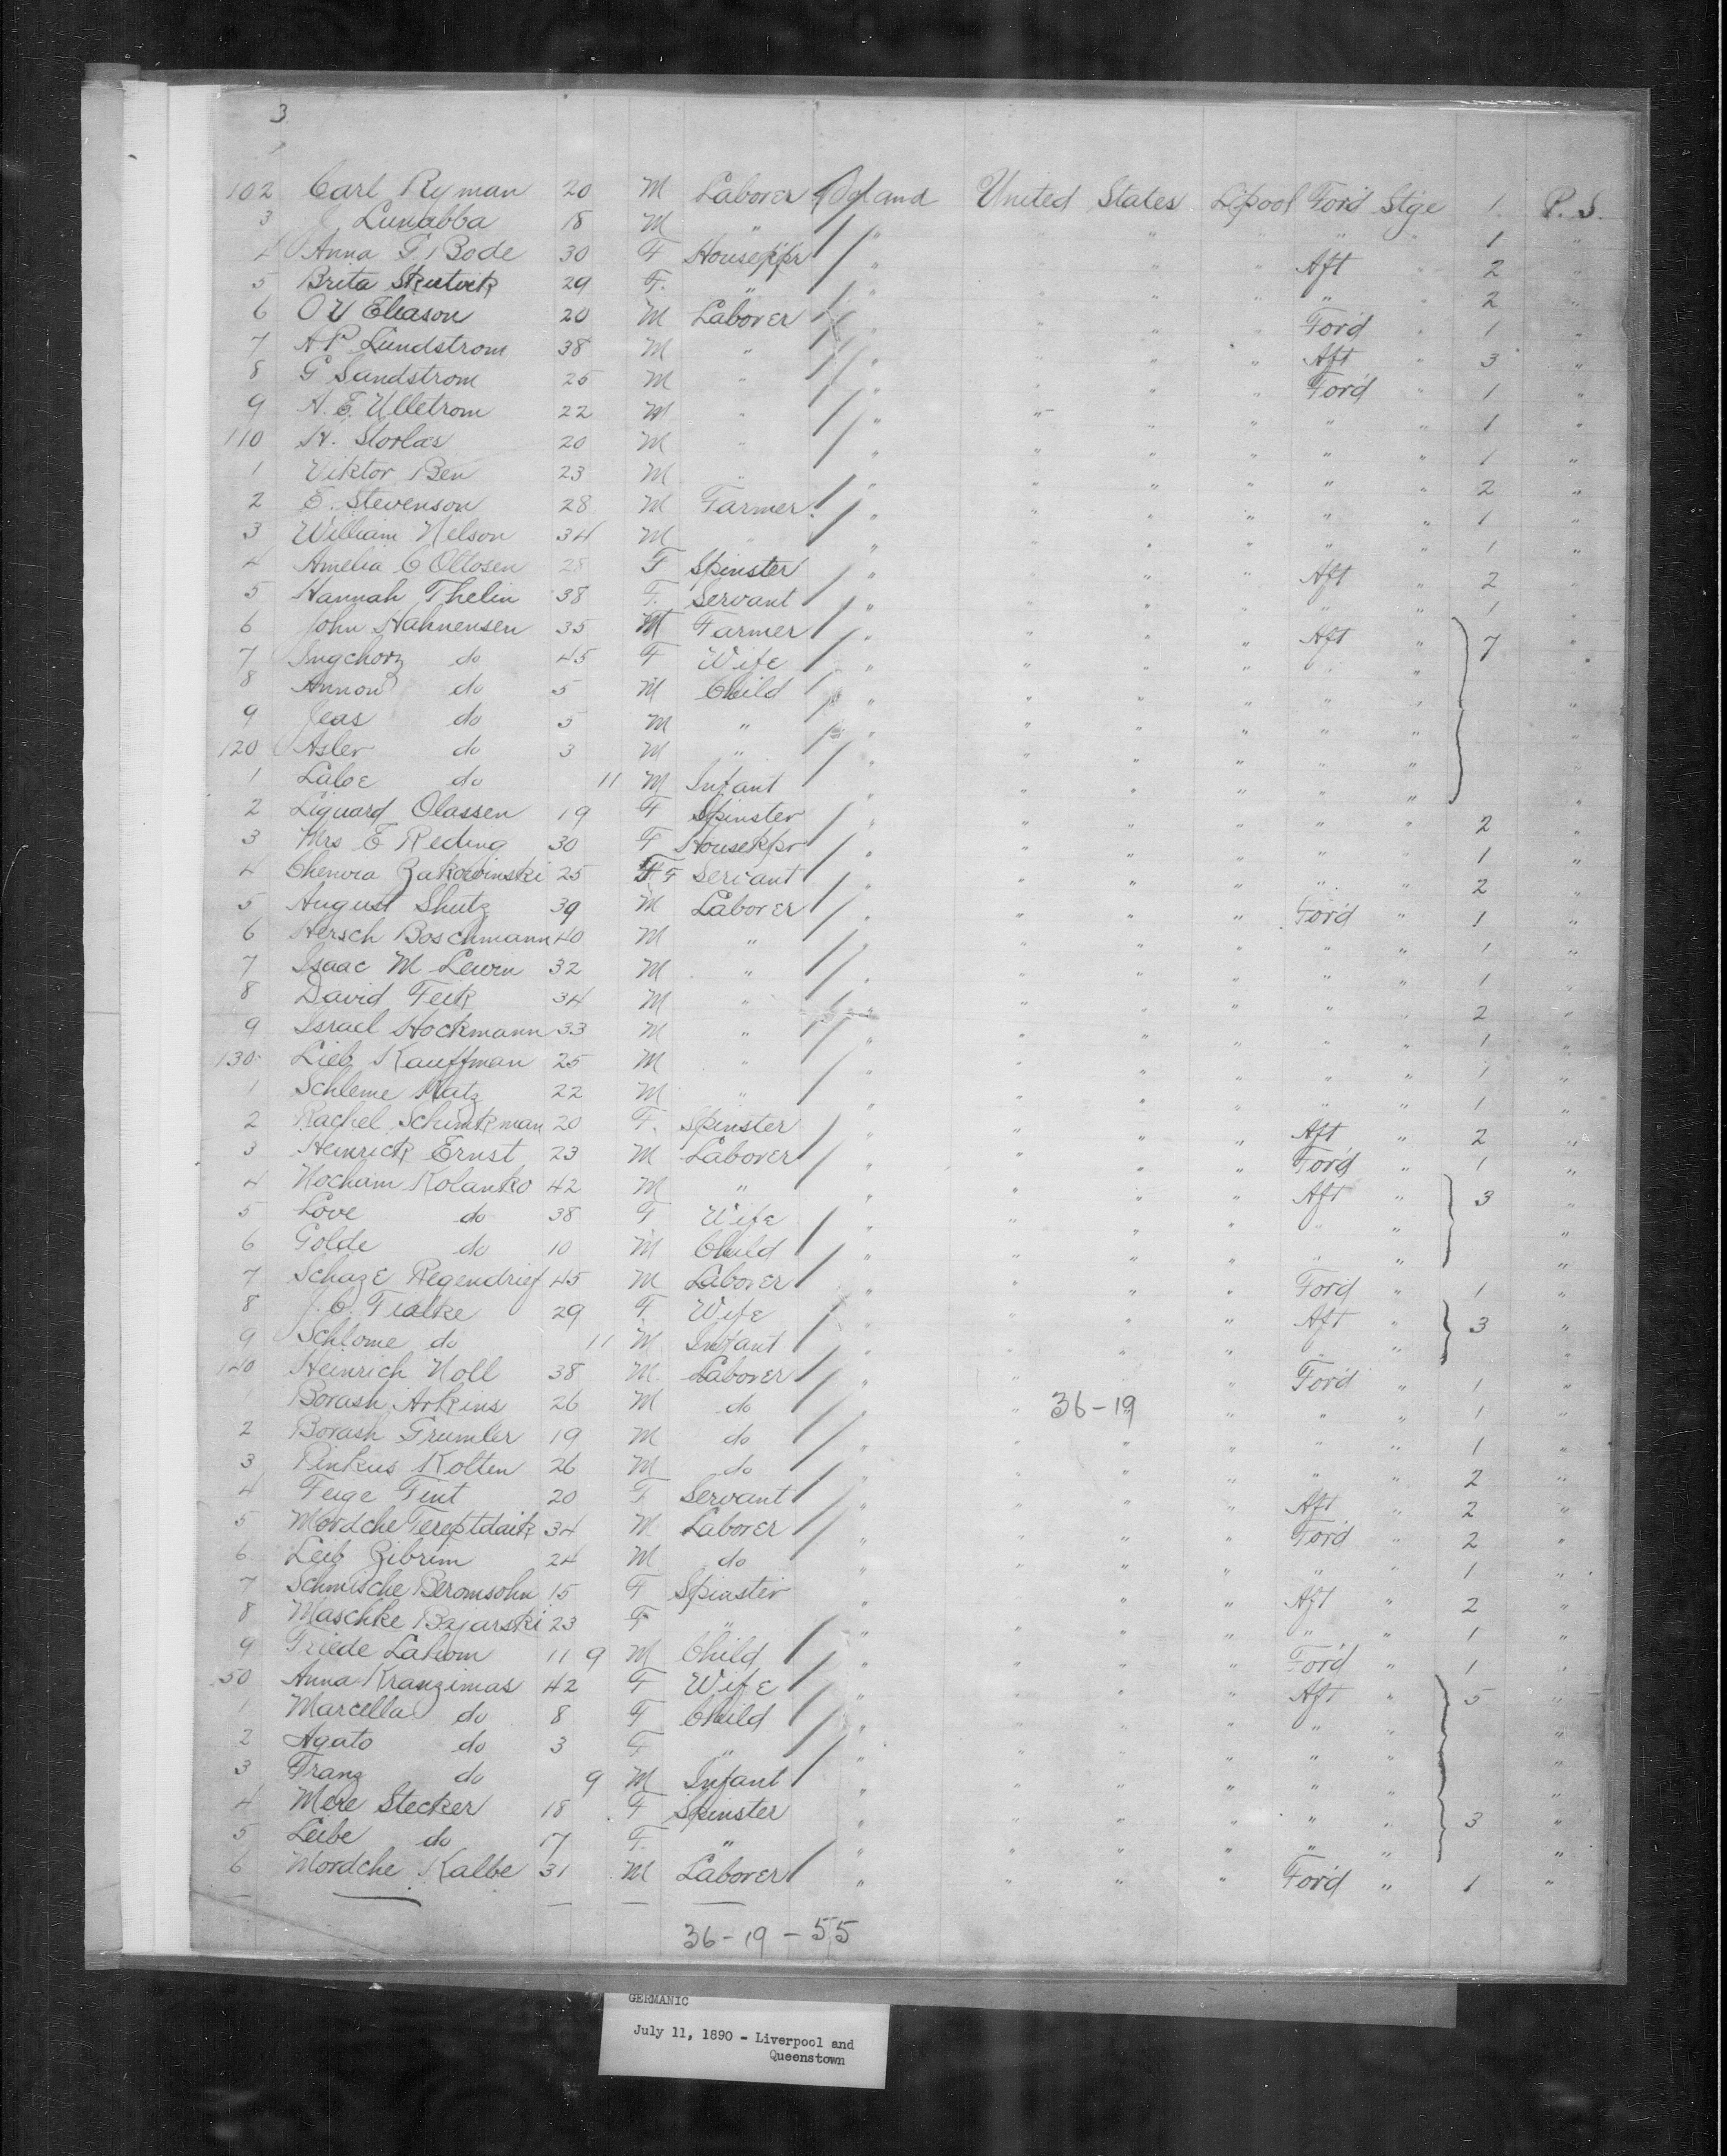 3
102 Carl Ryman 20 M Laborer United States L'pool For'd Stge 1 P. S.
3 J Lunabba 18 M " " " " " " " 1 "
4 Anna G Bode 30 F Housekpr " " " " Aft " 2 "
5 Brita Skutvik 29 F. " " " " " " " 2 "
6 O U Eliason 20 M Laborer " " " " For'd " 1 "
7 A P Lundstrom 38 M " " " " " Aft " 3 "
8 G Sandstrom 25 M " " " " " For'd " 1 "
9 A. E. Ulletrom 22 M " " " " " " " 1 "
110 H. Storlas 20 M " " " " " " " 1 "
1 Viktor Ben 23 M " " " " " " " 2 "
2 E. Stevenson 28 M Farmer " " " " " " 1 "
3 William Nelson 34 M " " " " " " " 1 "
4 Amelia C Ottosen 28 F Spinster " " " " Aft " 2 "
5 Hannah Thelin 38 F. Servant " " " " " " 1 "
6 John Hahnensen 35 M Farmer " " " " Aft " 7 "
7 Ingchorz do 45 F Wife " " " " " " "
8 Annon do 5 M Child " " " " " " "
9 Jeas do 5 M " " " " " " " "
120 Asler do 3 M " " " " " " " "
1 Laloe do 11 M Infant " " " " " " "
2 Liguard Olassen 19 F Spinster " " " " " " 2 "
3 Mrs E Reding 30 F Housekpr " " " " " " 1 "
4 Chenora Zakowinski 25 F Servant " " " " " " 2 "
5 August Shutz 39 M Laborer " " " " For'd " 1 "
6 Hersch Boschmann 40 M " " " " " " " 1 "
7 Isaac M Lewin 32 M " " " " " " " 1 "
8 David Feik 34 M " " " " " " " 2 "
9 Israel Hockmann 33 M " " " " " " " 1 "
130 Lieb Kauffman 25 M " " " " " " " 1 "
1 Schleme Matz 22 M " " " " " " " 1 "
2 Rachel Schimkman 20 F. Spinster " " " " Aft " 2 "
3 Heinrick Ernst 23 M Laborer " " " " For'd " 1 "
4 Nocham Kolanko 42 M " " " " " Aft " 3 "
5 Love do 38 F Wife " " " " " " "
6 Golde do 10 M Child " " " " " " "
7 Schaze Regendrief 45 M Laborer " " " " For'd " 1 "
8 J. C. Fialke 29 F. Wife " " " " Aft " 3 "
9 Schlome do 11 M Infant " " " " " " "
140 Heinrich Noll 38 M. Laborer " " " " For'd " 1 "
1 Borash Arkins 26 M do " " 36-19 " " " 1 "
2 Borash Grumler 19 M do " " " " " " 1 "
3 Pinkus Kolten 26 M do " " " " " " 2 "
4 Feige Fint 20 F Servant " " " " Aft " 2 "
5 Mordche Tereptdaik 34 M. Laborer " " " " For'd " 2 "
6 Leib Zibrim 24 M do " " " " " " 1 "
7 Schmische Beromsohn 15 F Spinster " " " " Aft " 2 "
8 Maschke Bajarski 23 F " " " " " " " 1 "
9 Friede Lahom 11 9 M Child " " " " For'd " 1 "
50 Anna Kranzimas 42 F Wife " " " " Aft " 5 "
1 Marcella do 8 F Child " " " " " " "
2 Agato do 3 F " " " " " " " "
3 Franz do 9 M Infant " " " " " " "
4 Mere Stecker 18 F Spinster " " " " " " 3 "
5 Leibe do 17 F. " " " " " " " "
6 Mordche Kalbe 31 M Laborer " " " " For'd " 1 "
36-19-55
GERMANIC
July 11, 1890 - Liverpool and
Queenstown